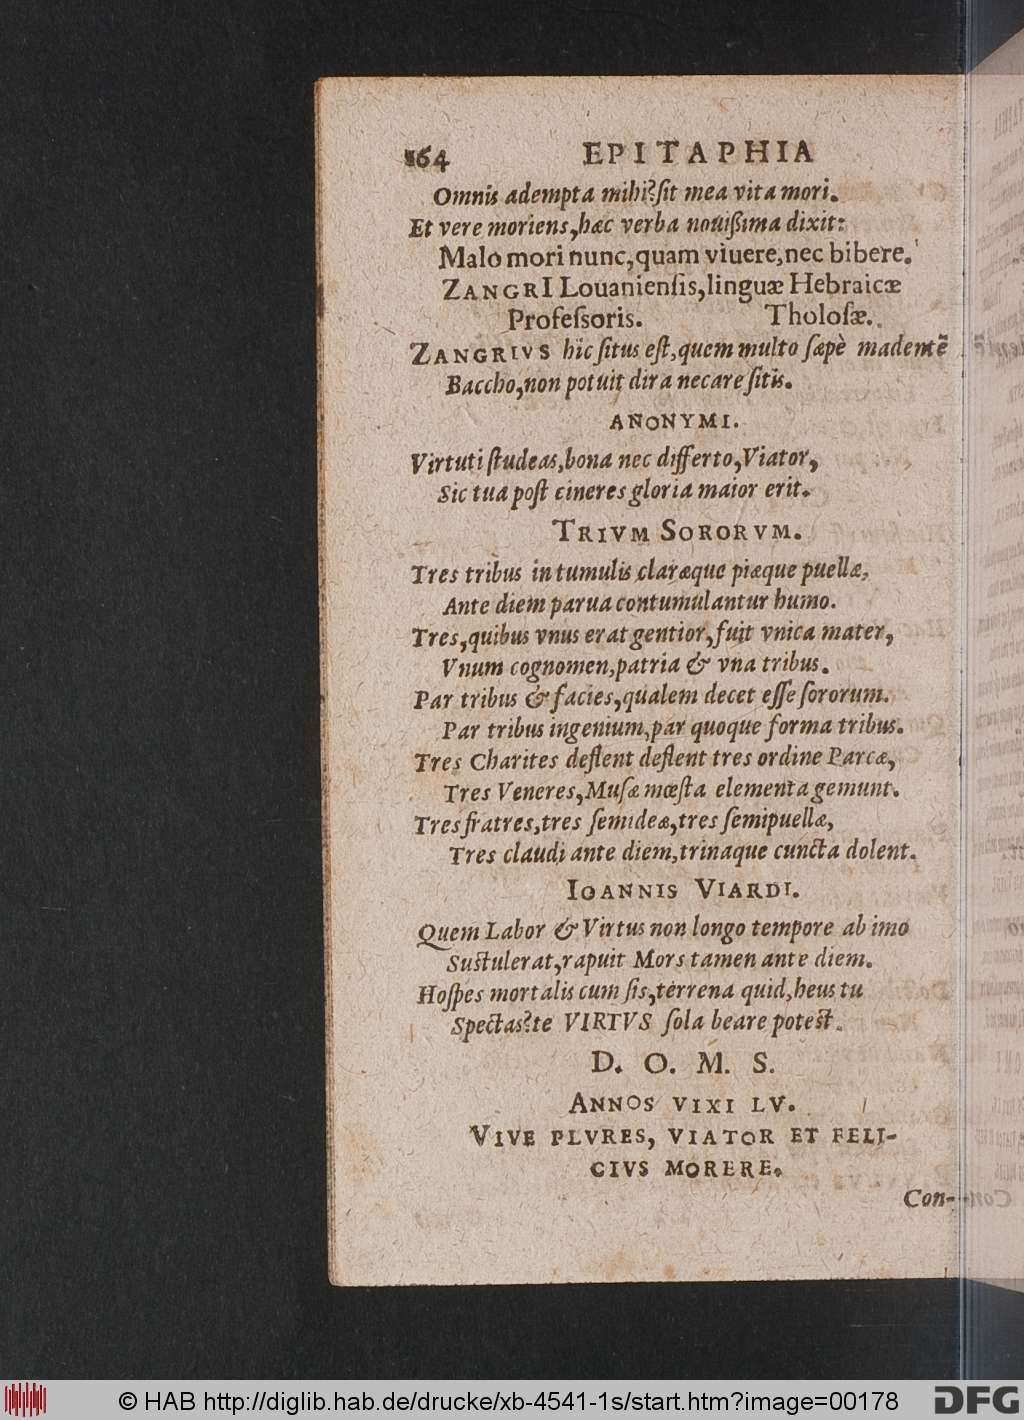 164 EPITAPHIA
Omnis adempta mihi? ſit mea vita mori.
Et vere moriens, hæc verba nouißima dixit:
Malo mori nunc, quam viuere, nec bibere.
ZANGRI Louanienſis, linguæ Hebraicæ
Profeſsoris. Tholoſæ.
ZANGRIVS hîc ſitus eſt, quem multo ſæpè madentē
Baccho, non potuit dira necare ſitis.
ANONYMI.
Virtuti ſtudeas, bona nec differto, Viator,
Sic tua poſt cineres gloria maior erit.
TRIVM SORORVM.
Tres tribus in tumulis claræque piæque puellæ,
Ante diem parua contumulantur humo.
Tres, quibus vnus erat gentior, fuit vnica mater,
Vnum cognomen, patria & vna tribus.
Par tribus & facies, qualem decet eſſe ſororum.
Par tribus ingenium, par quoque forma tribus.
Tres Charites deflent deflent tres ordine Parcæ,
Tres Veneres, Muſæ mœſta elementa gemunt.
Tres fratres, tres ſemideæ, tres ſemipuellæ,
Tres claudi ante diem, trinaque cuncta dolent.
IOANNIS VIARDI.
Quem Labor & Virtus non longo tempore ab imo
Suſtulerat, rapuit Mors tamen ante diem.
Hoſpes mortalis cum ſis, terrena quid, heus tu
Spectas? te VIRTVS ſola beare poteſt.
D. O. M. S.
ANNOS VIXI LV.
VIVE PLVRES, VIATOR ET FELI-
CIVS MORERE.
Con-
© HAB http://diglib.hab.de/drucke/xb-4541-1s/start.htm?image=00178 DFG